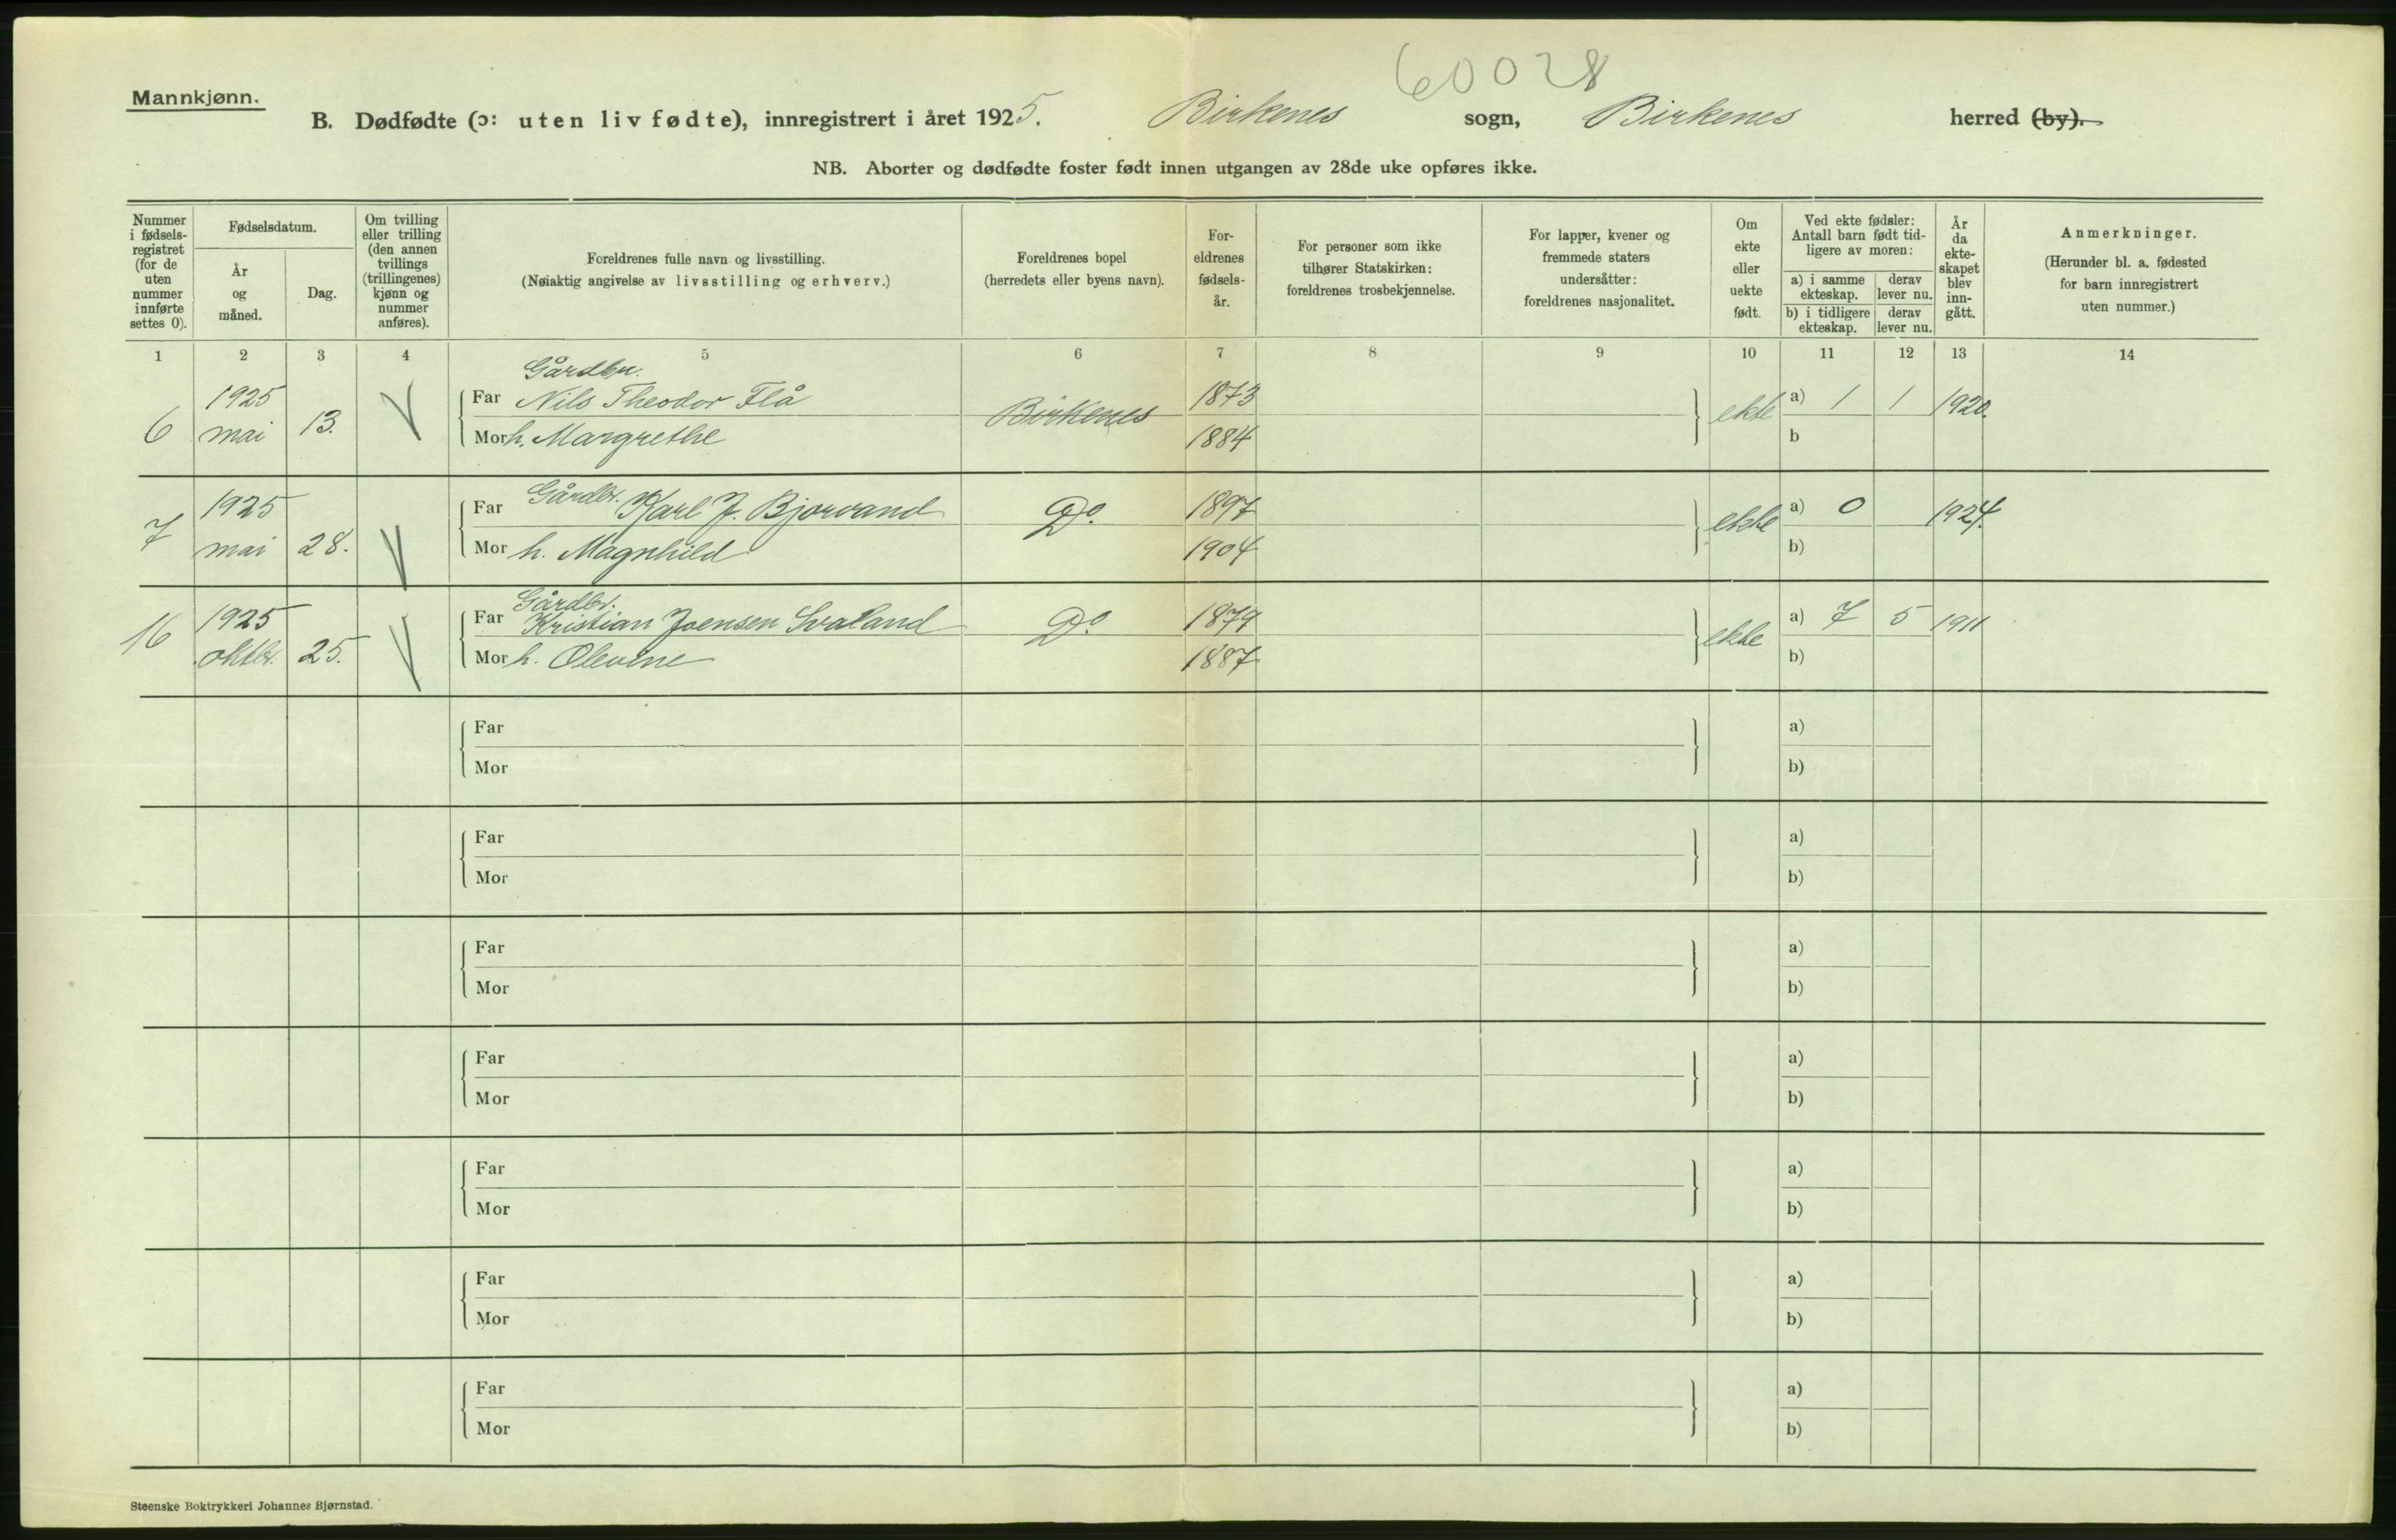 60028
Mannkjønn.
B. Dødfødte (ɔ: uten liv fødte), innregistrert i året 1925. Birkenes sogn, Birkenes herred (by).
NB. Aborter og dødfødte foster født innen utgangen av 28de uke opføres ikke.
Nummer i fødsels-registret (for de uten nummer innførte settes 0).
Fødselsdatum.
År og måned.
Dag.
Om tvilling eller trilling (den annen tvillings (trillingenes) kjønn og nummer anføres).
Foreldrenes fulle navn og livsstilling.
(Nøiaktig angivelse av livsstilling og erhverv.)
Foreldrenes bopel
(herredets eller byens navn).
For-eldrenes fødsels-år.
For personer som ikke tilhører Statskirken: foreldrenes trosbekjennelse.
For lapper, kvener og fremmede staters undersåtter: foreldrenes nasjonalitet.
Om ekte eller uekte født.
Ved ekte fødsler: Antall barn født tid-ligere av moren:
a) i samme ekteskap.
derav lever nu.
b) i tidligere ekteskap.
derav lever nu.
År da ekte-skapet blev inn-gått.
Anmerkninger.
(Herunder bl. a. fødested for barn innregistrert uten nummer.)
1 2 3 4 5 6 7 8 9 10 11 12 13 14
Gårdbr.
6 1925 mai 13. Far Nils Theodor Flå Birkenes 1873 ekte a) 1 1 1920.
Mor h. Margrethe 1884 b
7 1925 mai 28. Far Gårdbr. Karl J. Bjorvand Do. 1897 ekte a) 0 1924.
Mor h. Magnhild 1904 b)
Gårdbr.
16 1925 oktbr. 25. Far Kristian Joensen Svaland Do 1879 ekte a) 7 5 1911
Mor h. Olevine 1887 b)
Far a)
Mor b)
Far a)
Mor b)
Far a)
Mor b)
Far a)
Mor b)
Far a)
Mor b)
Far a)
Mor b)
Far a)
Mor b)
Steenske Boktrykkeri Johannes Bjørnstad.